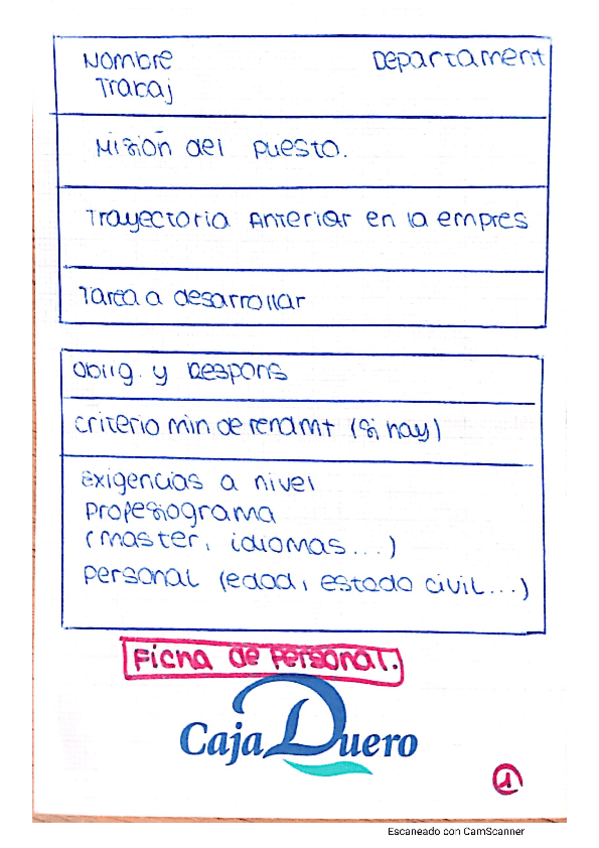 Nombre Departament
Trabaj
Misión del puesto.
Trayectoria Anterior en la empres
Tarea a desarrollar
Oblig. y Respons
criterio min de rendmt (si hay)
exigencias a nivel
profesiograma
(master, idiomas...)
personal (edad, estado civil...)
Ficha de personal.
Caja Duero
1
Escaneado con CamScanner